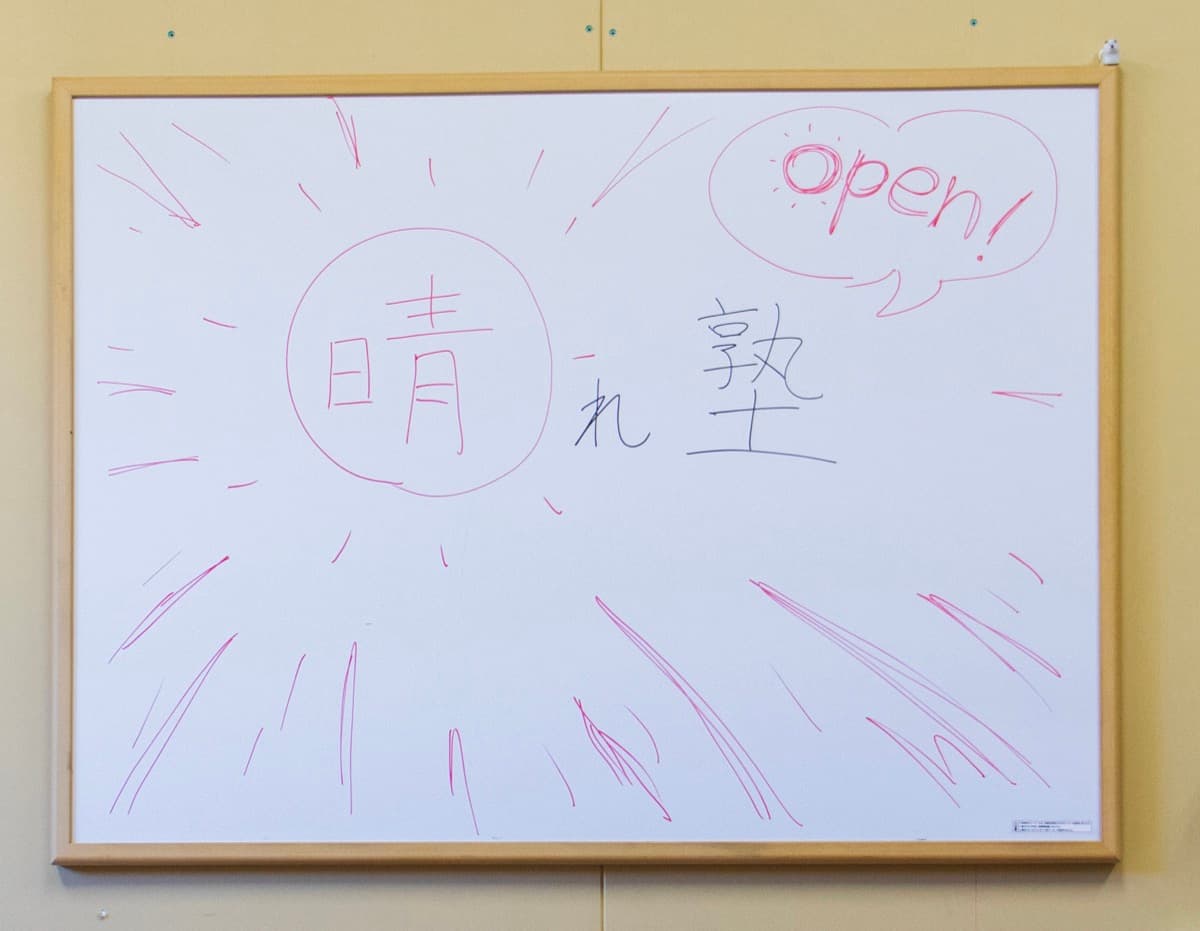 open!
晴れ塾